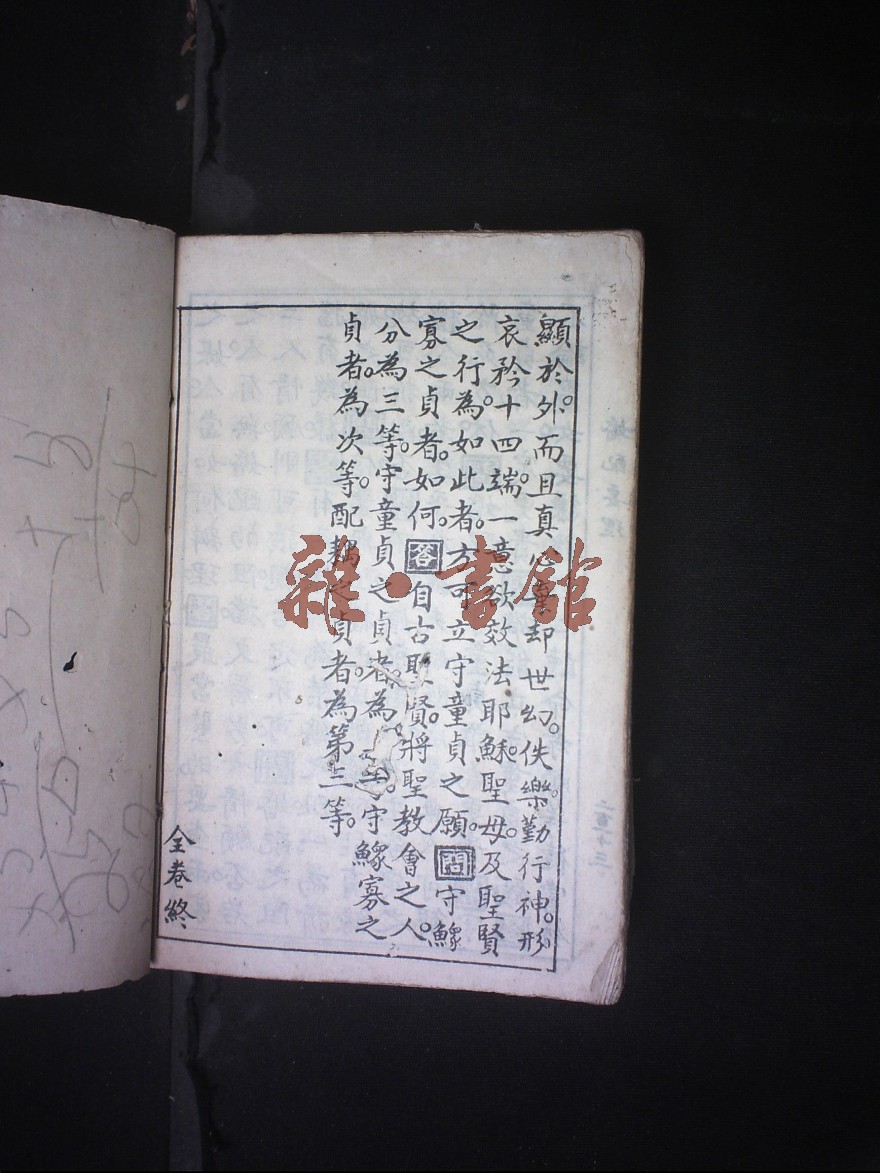 顯於外。而且真心棄却世幻。佚樂。勤行神。形
哀矜。十四端。一意欲效法耶穌。聖母。及聖賢
之行為。如此者。方可立守童貞之願。問守鰥
寡之貞者。如何。答自古聖賢。將聖教會之人。
分為三等。守童貞之貞者。為守鰥寡之
貞者。為次等。配耦之貞者。為第三等。
全卷終
雜·書館
二百十三